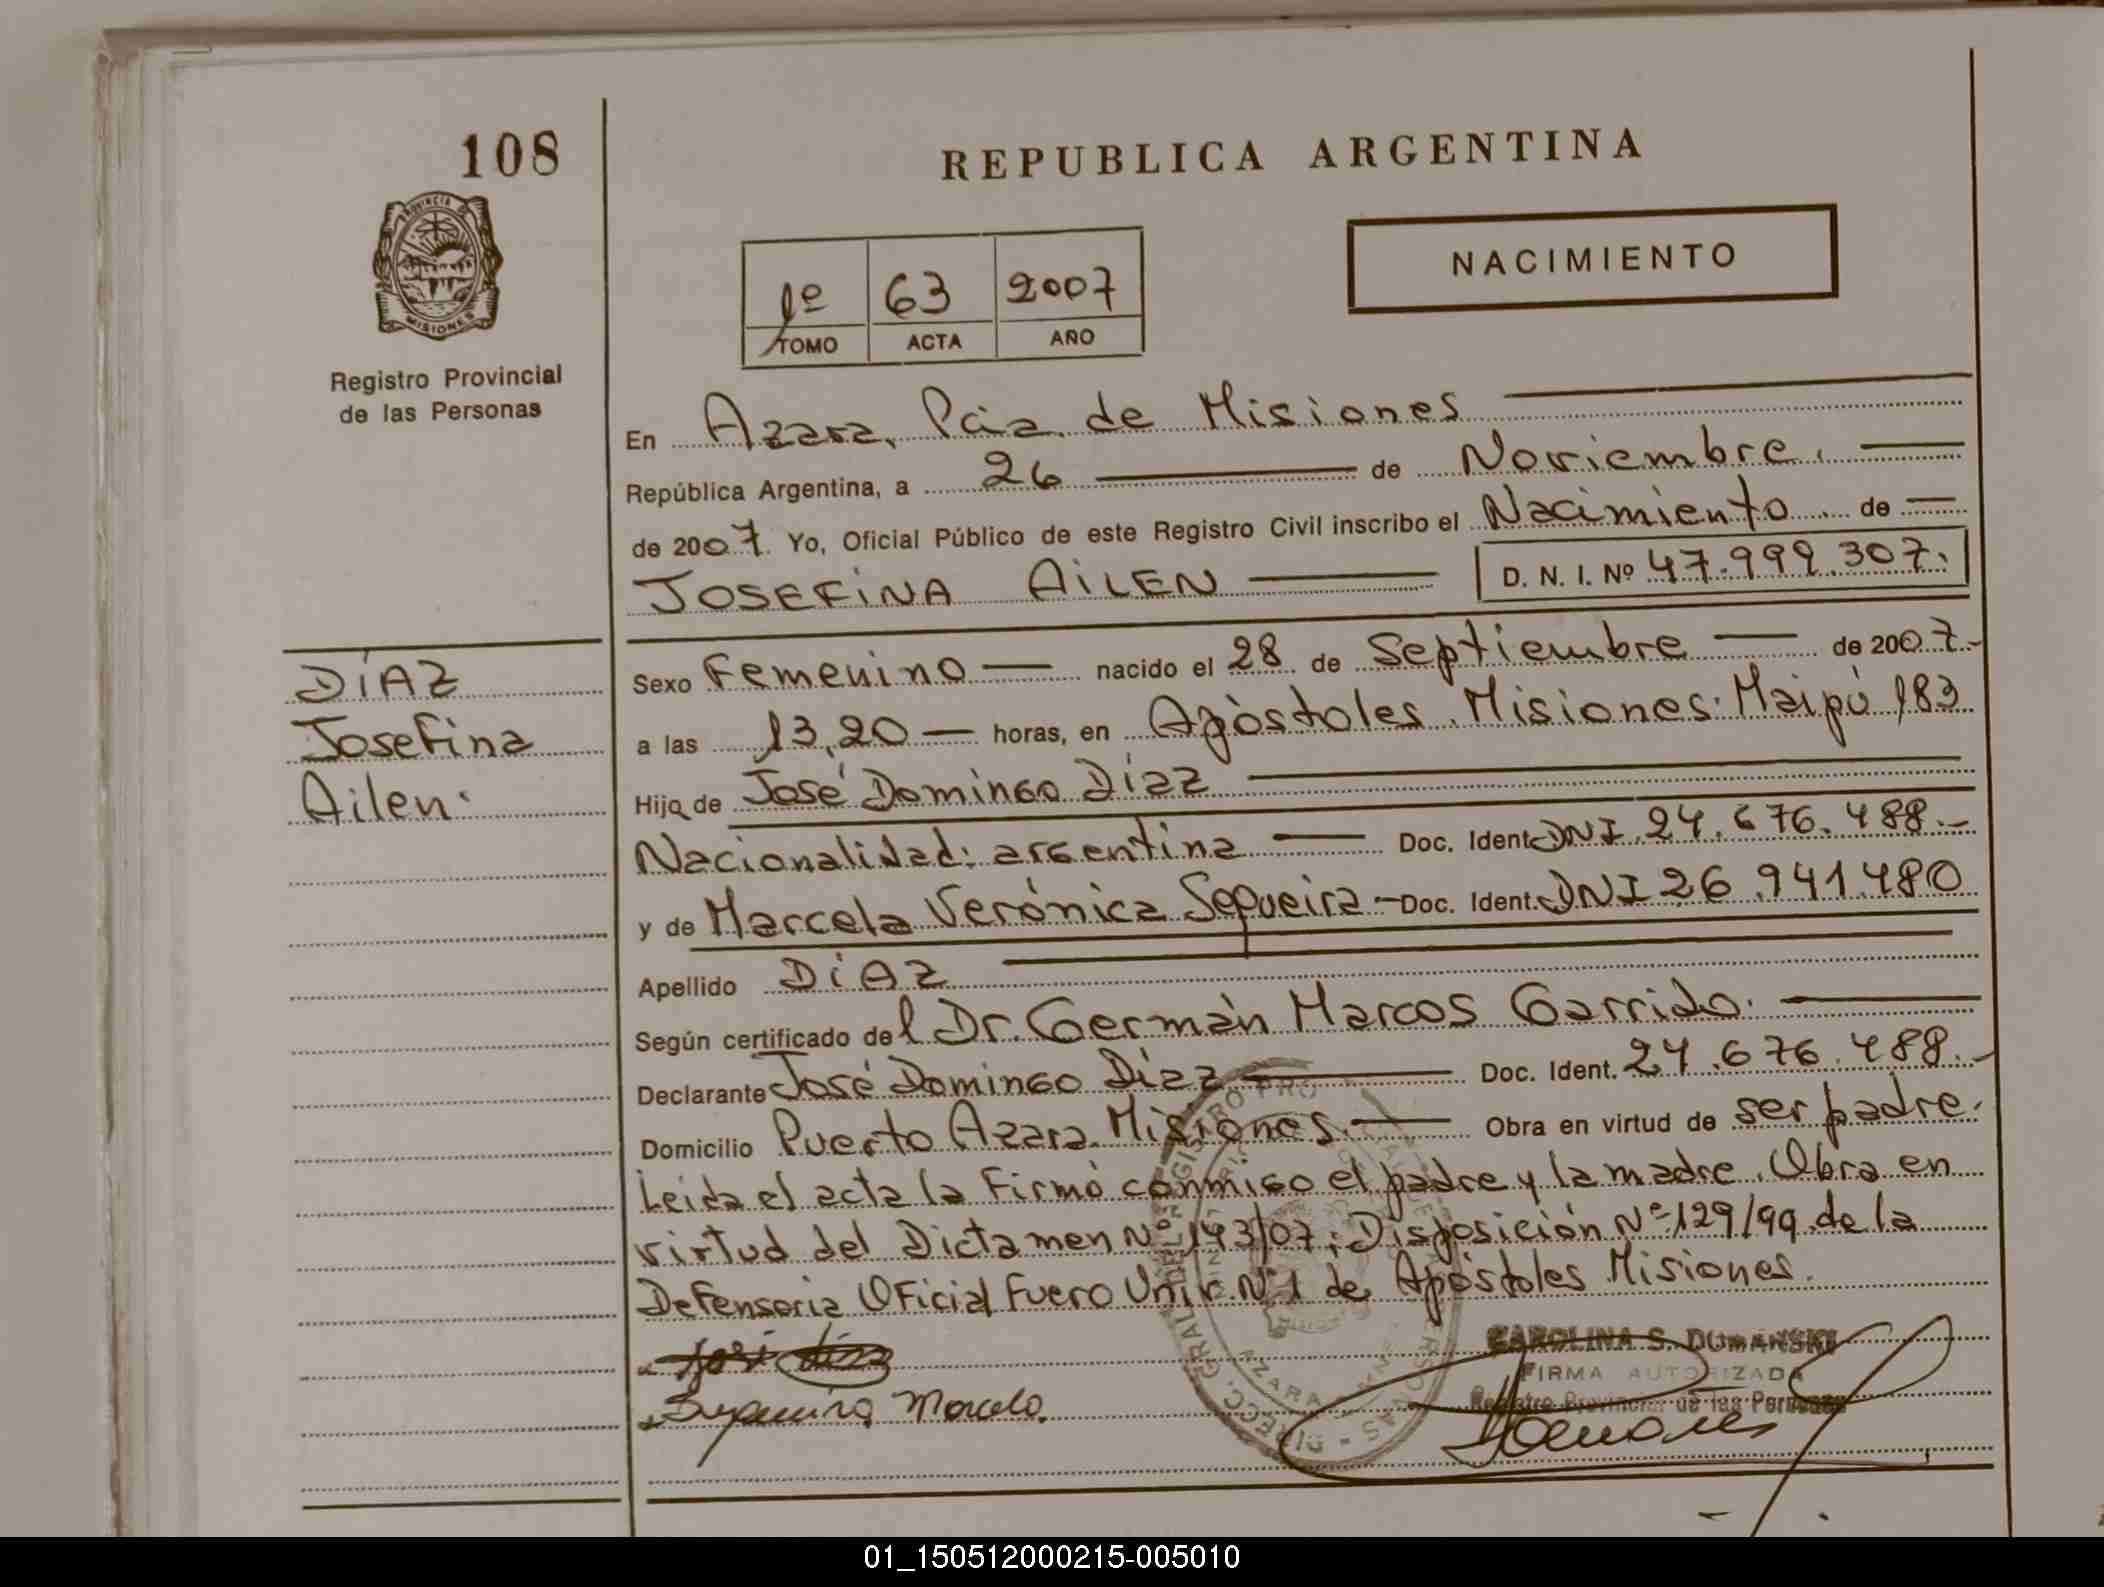 108
REPUBLICA ARGENTINA
PROVINCIA DE
MISIONES
NACIMIENTO
1º 63 2007
TOMO ACTA AÑO
Registro Provincial
de las Personas
En Azara, Pcia. de Misiones
República Argentina, a 26 de Noviembre.
de 2007. Yo, Oficial Público de este Registro Civil inscribo el Nacimiento de
JOSEFINA AILEN D. N. I. Nº 47.999.307.
DÍAZ
Josefina
Ailen.
Sexo Femenino nacido el 28 de Septiembre de 2007.-
a las 13,20 horas, en Apóstoles Misiones. Maipú 183
Hija de José Domingo Díaz
Nacionalidad: argentina Doc. Ident. DNI 24.676.488.-
y de Marcela Verónica Sequeira - Doc. Ident. DNI 26.941.480
Apellido DÍAZ
Según certificado del Dr. Germán Marcos Garrido.
Declarante José Domingo Díaz Doc. Ident. 24.676.488.-
Domicilio Puerto Azara. Misiones. Obra en virtud de ser padre.
Leída el acta la Firmó conmigo el padre y la madre. Obra en
virtud del Dictamen Nº 143/07; Disposición Nº 129/99 de la
Defensoria Oficial Fuero Univ. Nº 1 de Apóstoles Misiones.
CAROLINA S. DUMANSKI
FIRMA AUTORIZADA
Registro Provincial de las Personas
Sequeira Marcela
AZARA
01_150512000215-005010